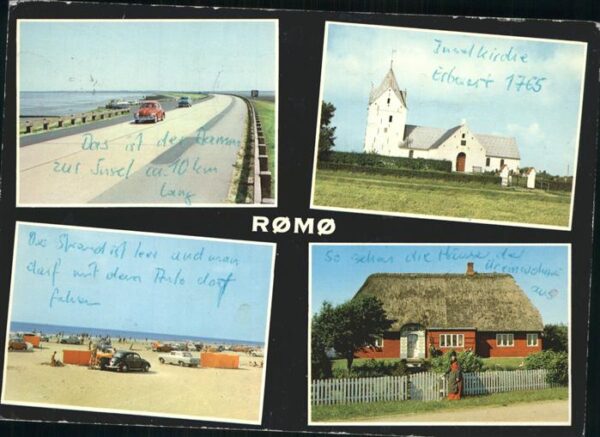 Das ist der Damm
zur Insel ca. 10 km
lang
Inselkirche
Erbaut 1765
RØMØ
Der Strand ist leer und man
darf mit dem Auto dort
fahren
So sehen die Häuser der
Einwohner
aus